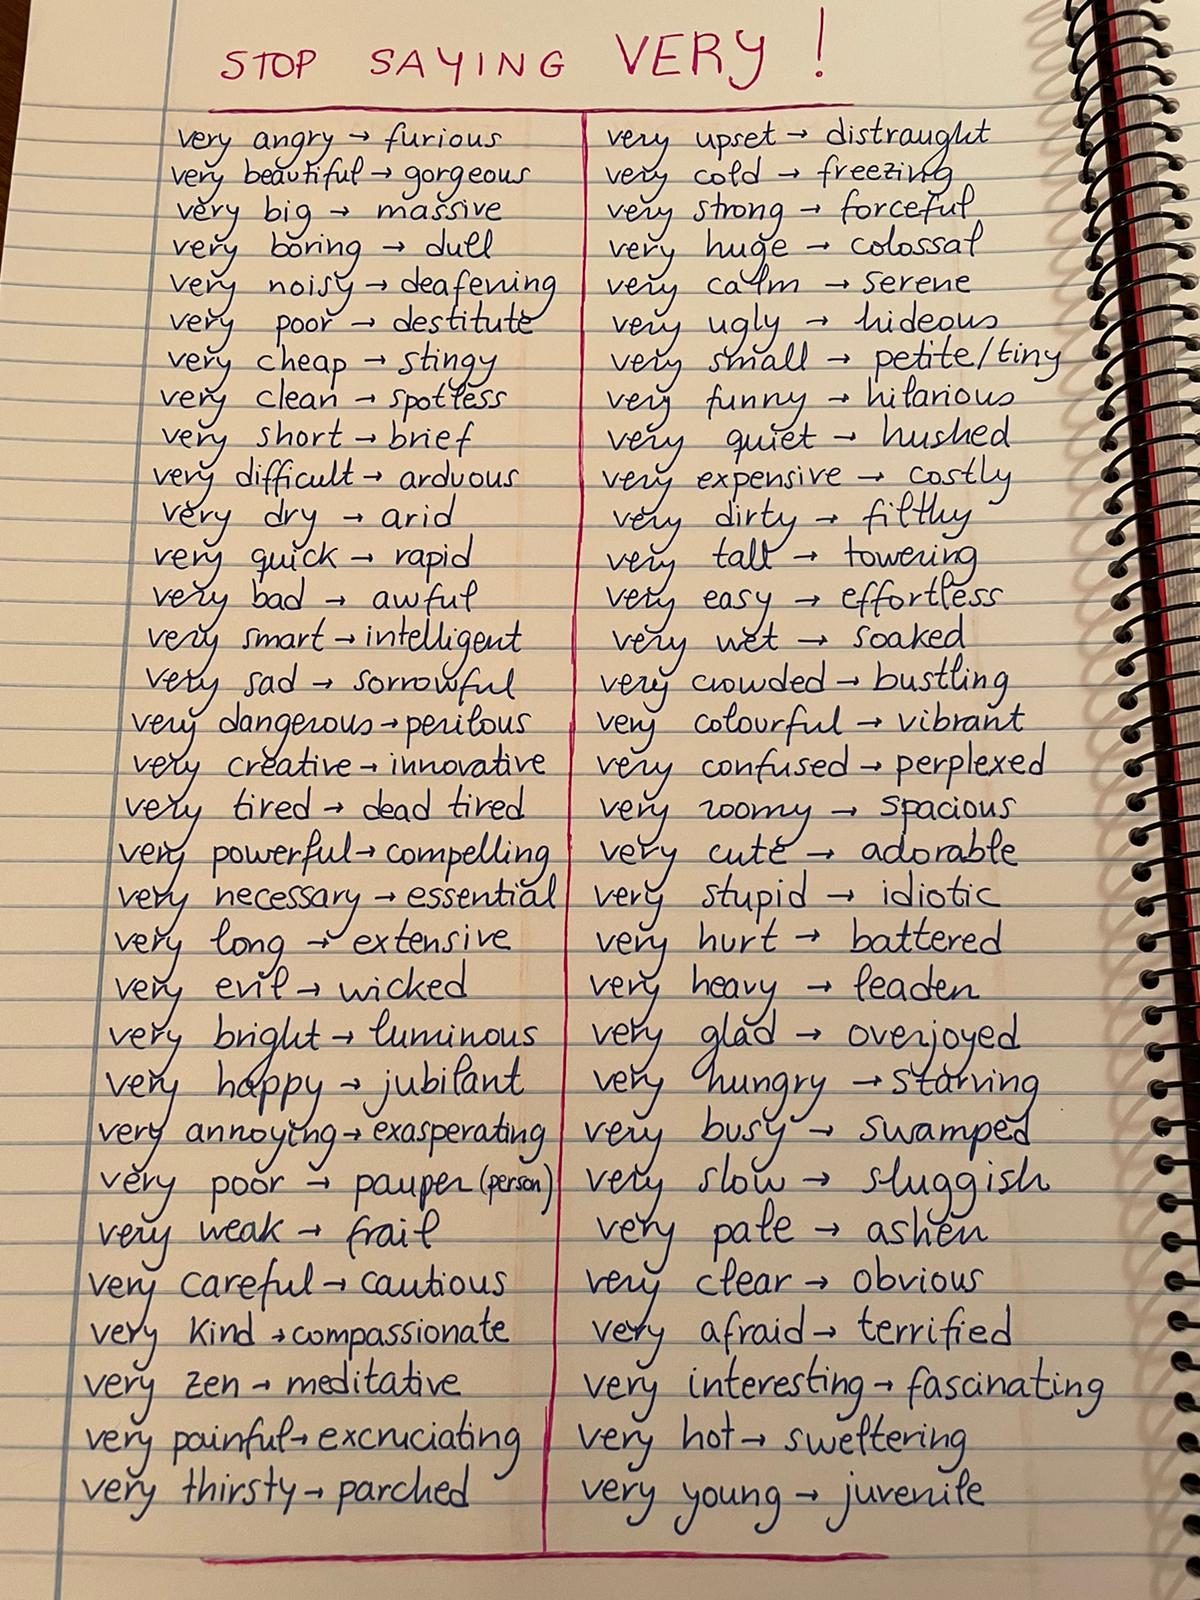 STOP SAYING VERY !
very angry → furious
very beautiful → gorgeous
very big → massive
very boring → dull
very noisy → deafening
very poor → destitute
very cheap → stingy
very clean → spotless
very short → brief
very difficult → arduous
very dry → arid
very quick → rapid
very bad → awful
very smart → intelligent
very sad → sorrowful
very dangerous → perilous
very creative → innovative
very tired → dead tired
very powerful → compelling
very necessary → essential
very long → extensive
very evil → wicked
very bright → luminous
very happy → jubilant
very annoying → exasperating
very poor → pauper (person)
very weak → frail
very careful → cautious
very kind → compassionate
very zen → meditative
very painful → excruciating
very thirsty → parched
very upset → distraught
very cold → freezing
very strong → forceful
very huge → colossal
very calm → serene
very ugly → hideous
very small → petite/tiny
very funny → hilarious
very quiet → hushed
very expensive → costly
very dirty → filthy
very tall → towering
very easy → effortless
very wet → soaked
very crowded → bustling
very colourful → vibrant
very confused → perplexed
very roomy → spacious
very cute → adorable
very stupid → idiotic
very hurt → battered
very heavy → leaden
very glad → overjoyed
very hungry → starving
very busy → swamped
very slow → sluggish
very pale → ashen
very clear → obvious
very afraid → terrified
very interesting → fascinating
very hot → sweltering
very young → juvenile